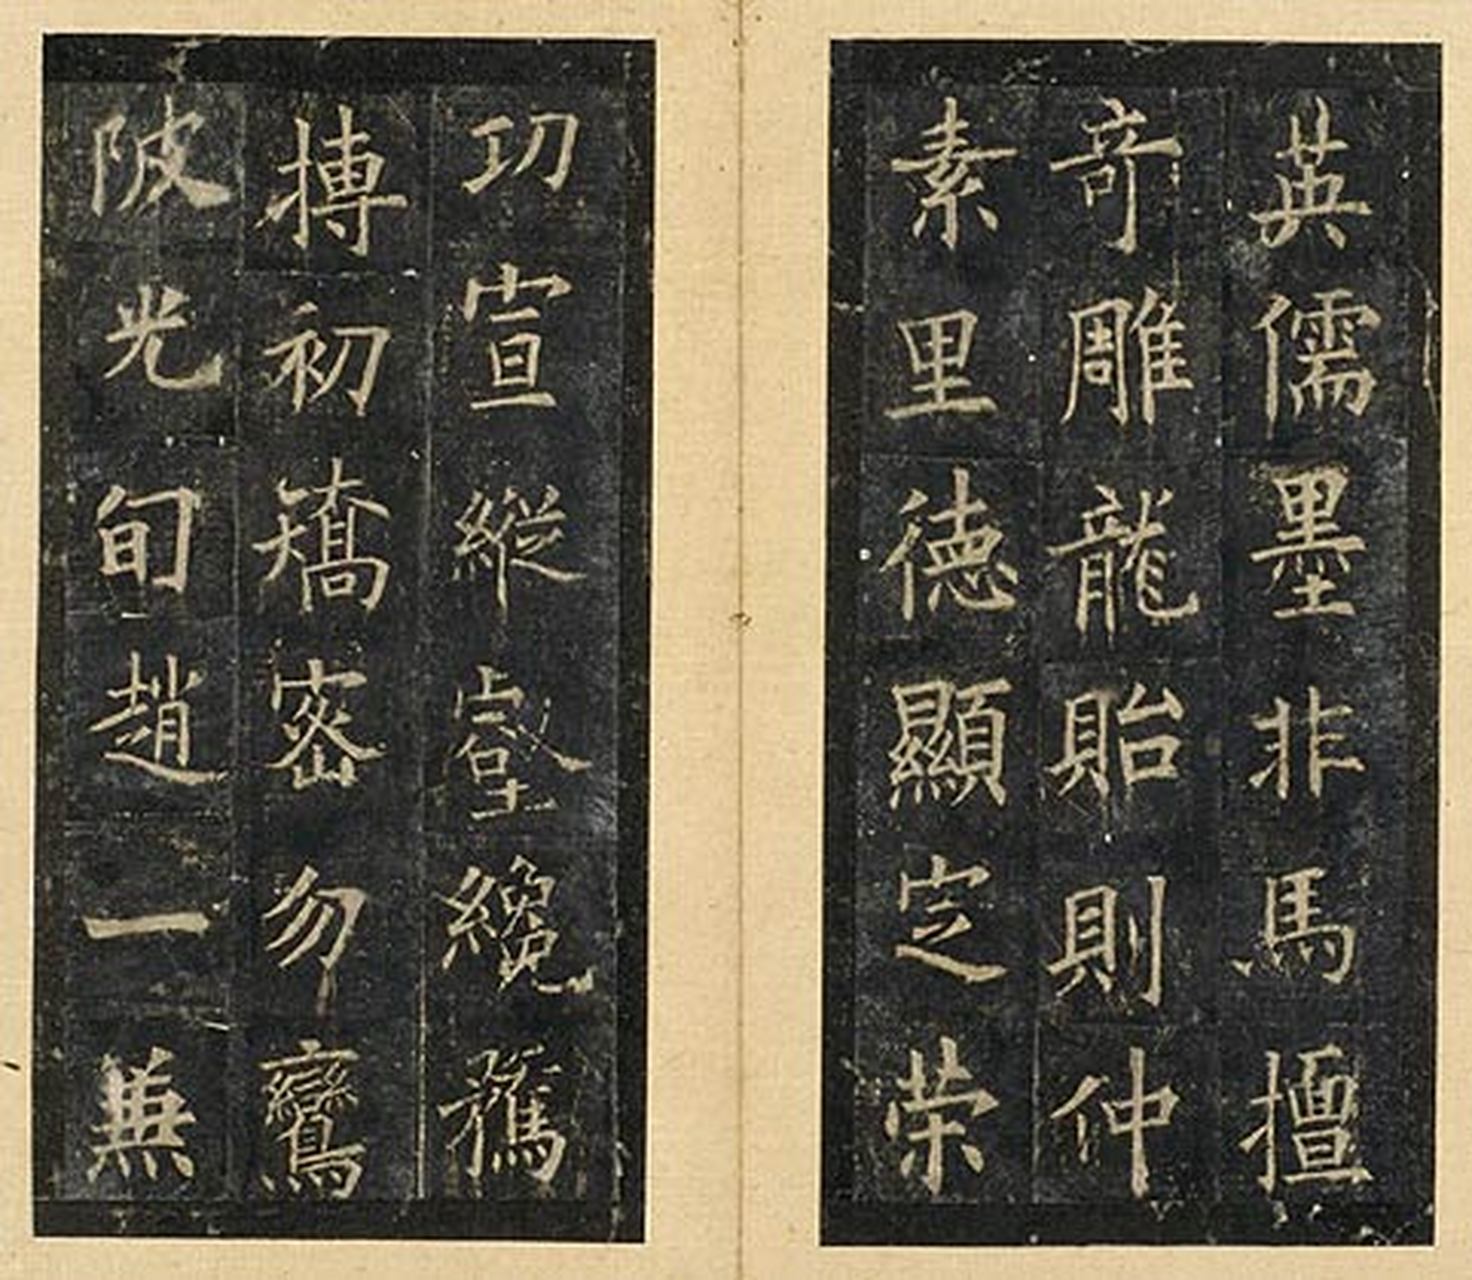 英儒墨非馬擅
奇雕龍貽則仲
素里德顯定荣
功宣縱壑纔騖
搏初矯密勿鸞
陂光旬趙一兼